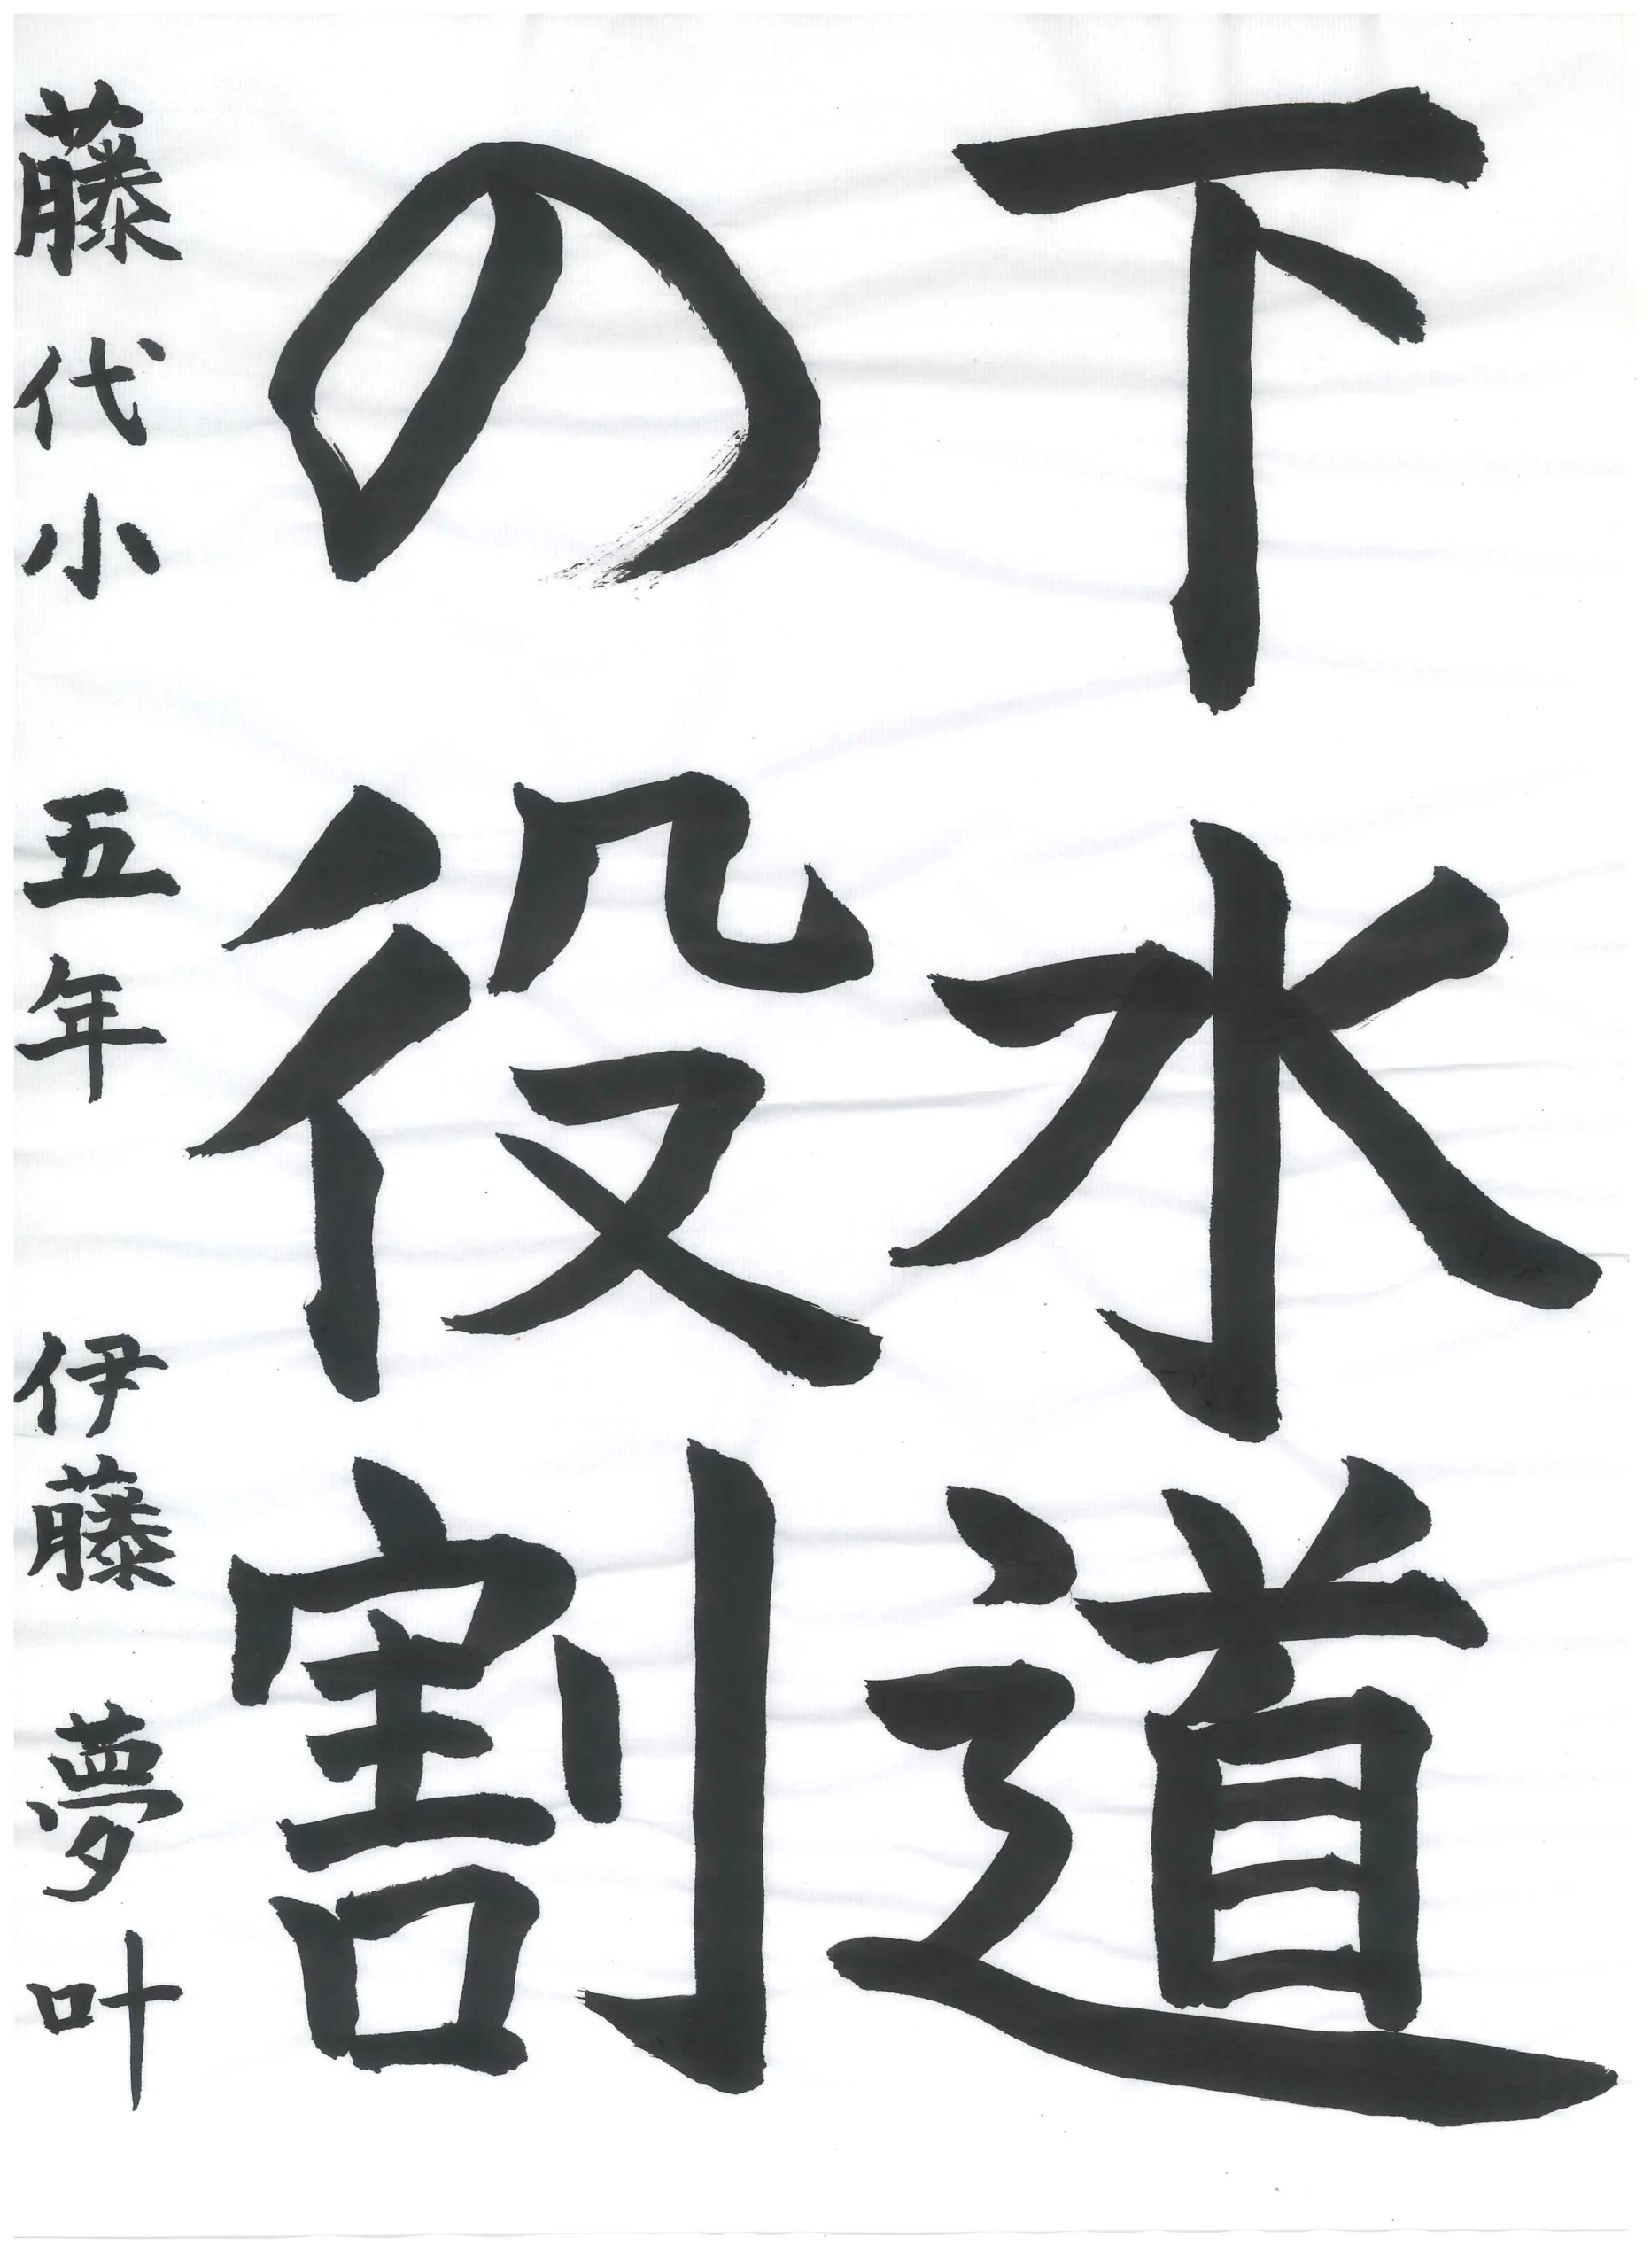 下水道
の役割
藤代小 五年 伊藤 夢叶